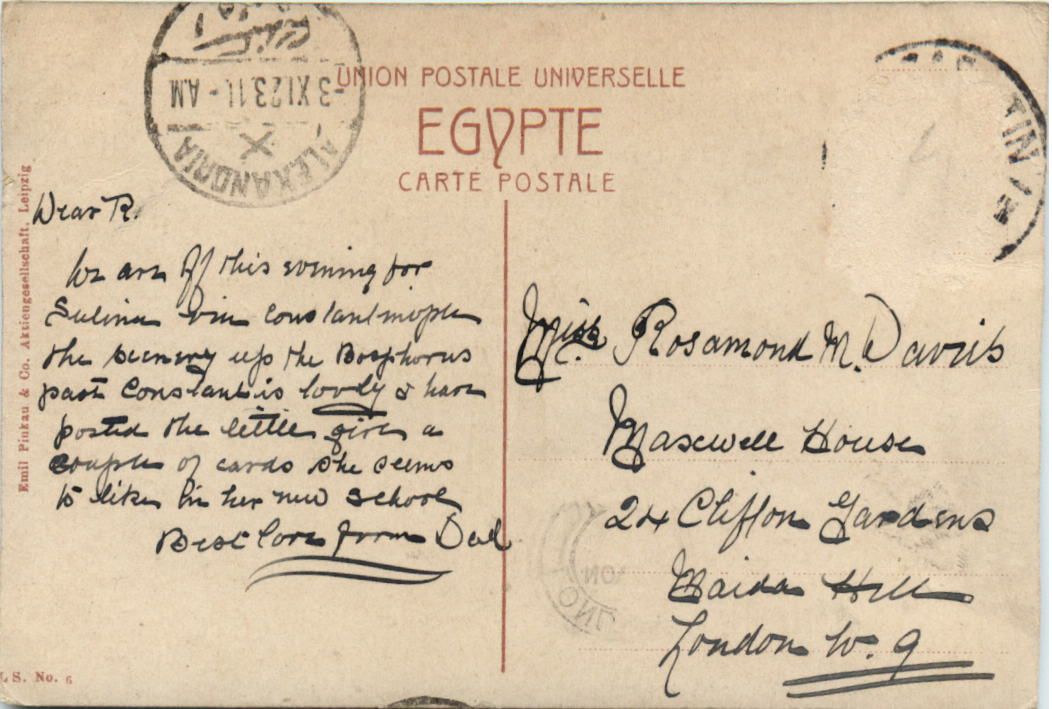 UNION POSTALE UNIVERSELLE
EGYPTE
CARTE POSTALE
ALEXANDRIA
-3 XI 23.11- AM
Emil Pinkau & Co. Aktiengesellschaft. Leipzig
Dear R.
We are off this evening for
Sulina via Constantinople
the scenery up the Bosphorus
past Constant is lovely & have
posted the little girl a
couple of cards she seems
to like in her new school
Best love from Dad
Miss Rosamond M. Davies
Maxwell House
24 Clifton Gardens
Maida Hill
London W. 9
S. No. 6